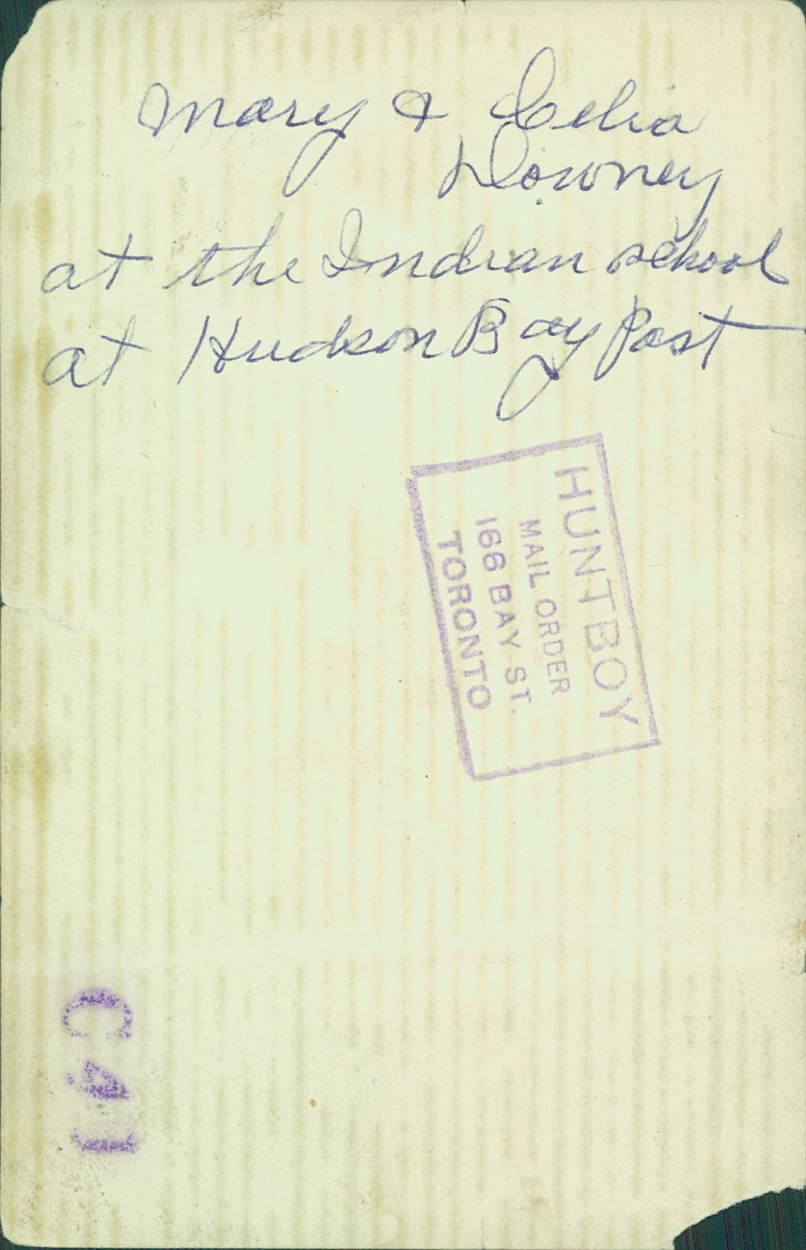 Mary & Celia
Downey
at the Indian school
at Hudson Bay Post
HUNT BOY
MAIL ORDER
166 BAY ST.
TORONTO